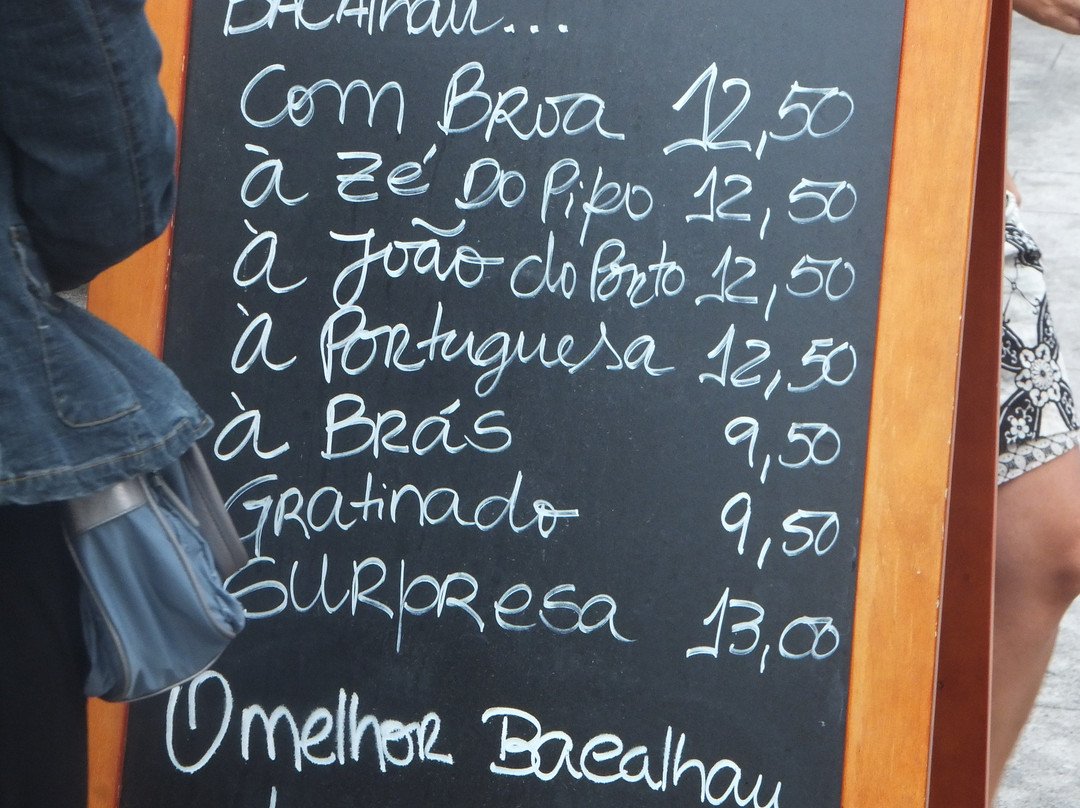 BACAlhau...
Com BRoa 12,50
à Zé Do Pipo 12,50
à João do Porto 12,50
à Portuguesa 12,50
à BRás 9,50
GRatinado 9,50
SURpResa 13,00
O melhoR Bacalhau